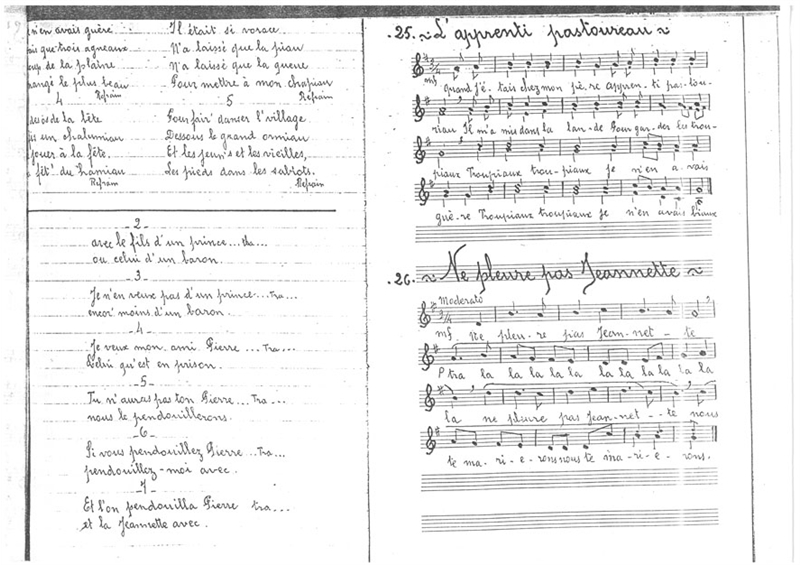 n'en avais guère
que trois agneaux
de la plaine
mangé le plus beau
4 Refrain
de la bête
un chalumiau
jouer à la fête.
fêt' du hamiau
Refrain
Il était si vorace
N'a laissé que la piau
N'a laissé que la queue
Pour mettre à mon chapiau
5 Refrain
Pour fair' danser l'village
Dessous le grand ormiau
Et les jeun's et les vieilles,
Les pieds dans les sabiots.
Refrain
2
avec le fils d'un prince...
ou celui d'un baron.
- 3 -
Je n'en veux pas d'un prince...tra...
encor' moins d'un baron.
- 4 -
Je veux mon ami Pierre ...Tra...
Celui qu'est en prison.
- 5 -
Tu n'auras pas ton Pierre ...Tra...
nous le pendouillerons.
- 6 -
Si vous pendouillez Pierre ...Tra...
pendouillez-moi avec.
- 7 -
Et l'on pendouilla Pierre tra...
et la Jeannette avec.
.25. ~ L'apprenti pastoureau ~
mf
Quand j'é-tais chez mon pè-re appren-ti pas-tou-
riau Il m'a mis dans la lan-de Pour gar-der les trou-
piaux Troupiaux trou-piaux je n'en a-vais
guè-re Troupiaux troupiaux je n'en avais biaux
.26. ~ Ne pleure pas Jeannette ~
Moderato
mf. Ne pleu-re pas Jean-net-te
P tra la la la la la la la la la la la
la ne pleure pas Jean-net--te nous
te ma-ri-e-rons nous te ma-ri-e-rons.